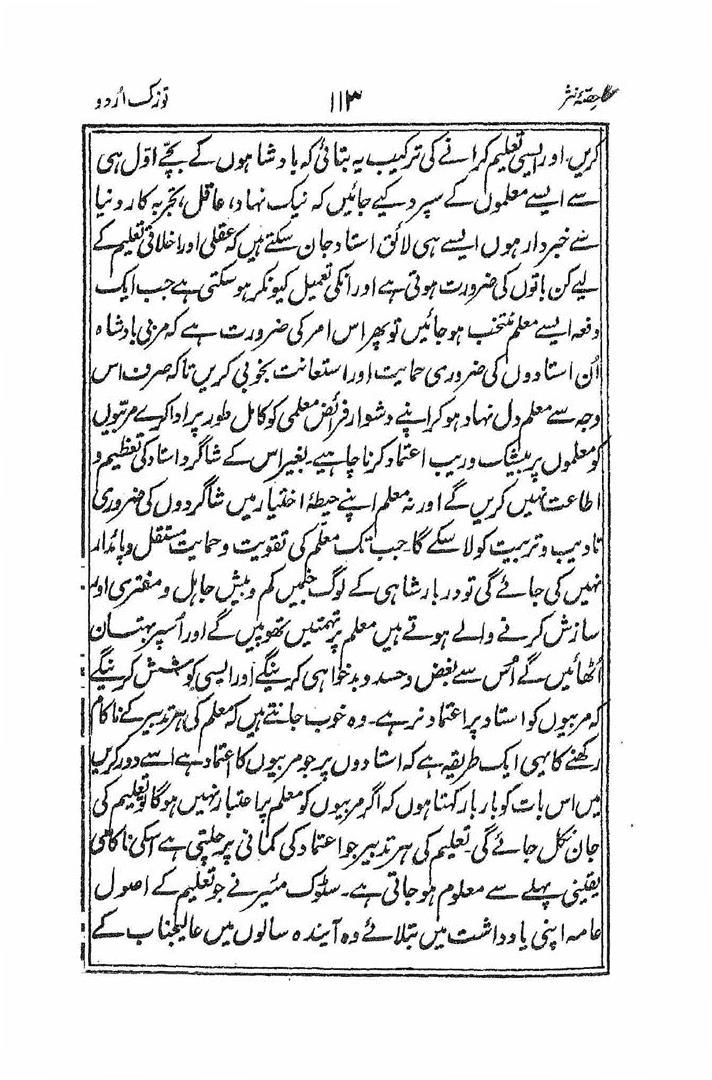 حصۂ نثر ۱۱۳ توزک اُردو
کریں۔ اور ایسی تعلیم کرانے کی ترکیب یہ بتائی کہ بادشاہوں کے بچے اوّل ہی
سے ایسے معلموں کے سپرد کیے جائیں کہ نیک نہاد، عاقل، تجربہ کار دنیا
سے خبردار ہوں ایسے ہی لائق استاد جان سکتے ہیں کہ عقلی اور اخلاقی تعلیم کے
لیے کن باتوں کی ضرورت ہوتی ہے اور انکی تعمیل کیونکر ہو سکتی ہے جب ایک
دفعہ ایسے معلم منتخب ہو جائیں تو پھر اس امر کی ضرورت ہے کہ مربی بادشاہ
اُن استادوں کی ضروری حمایت اور استعانت بخوبی کریں تاکہ صرف اس
وجہ سے معلم دل نہاد ہو کر اپنے دشوار فرائض معلمی کو کامل طور پر ادا کرے مربّیوں
کو معلموں پر بیشک و ریب اعتماد کرنا چاہیے۔ بغیر اس کے شاگرد استاد کی تعظیم و
اطاعت نہیں کریں گے اور نہ معلم اپنے حیطۂ اختیار میں شاگردوں کی ضروری
تادیب و تربیت کو لا سکے گا۔ جب تک معلّم کی تقویت و حمایت مستقل و پائدار
نہیں کی جائے گی تو دربار شاہی کے لوگ جنمیں کم و بیش جاہل و مفتری اور
سازش کرنے والے ہوتے ہیں معلم پر تہمتیں تھوپیں گے اور اُسپر بہتان
اُٹھائیں گے اُس سے بغض و حسد و بدخواہی کرینگے اور ایسی کوشش کرینگے
کہ مربیوں کو استاد پر اعتماد نرہے۔ وہ خوب جانتے ہیں کہ معلم کی ہر تدبیر کے ناکام
رکھنے کا یہی ایک طریقہ ہے کہ استادوں پر جو مربیوں کا اعتماد ہے اسے دور کریں
میں اس بات کو بار بار کہتا ہوں کہ اگر مربیوں کو معلم پر اعتبار نہیں ہو گا تو تعلیم کی
جان نکل جائے گی۔ تعلیم کی ہر تدبیر جو اعتماد کی کمانی پر چلتی ہے اسکی ناکامی
یقینی پہلے سے معلوم ہو جاتی ہے۔ سٹوک میئر نے جو تعلیم کے اصول
عامہ اپنی یادداشت میں بتلائے وہ آیندہ سالوں میں عالیجناب کے